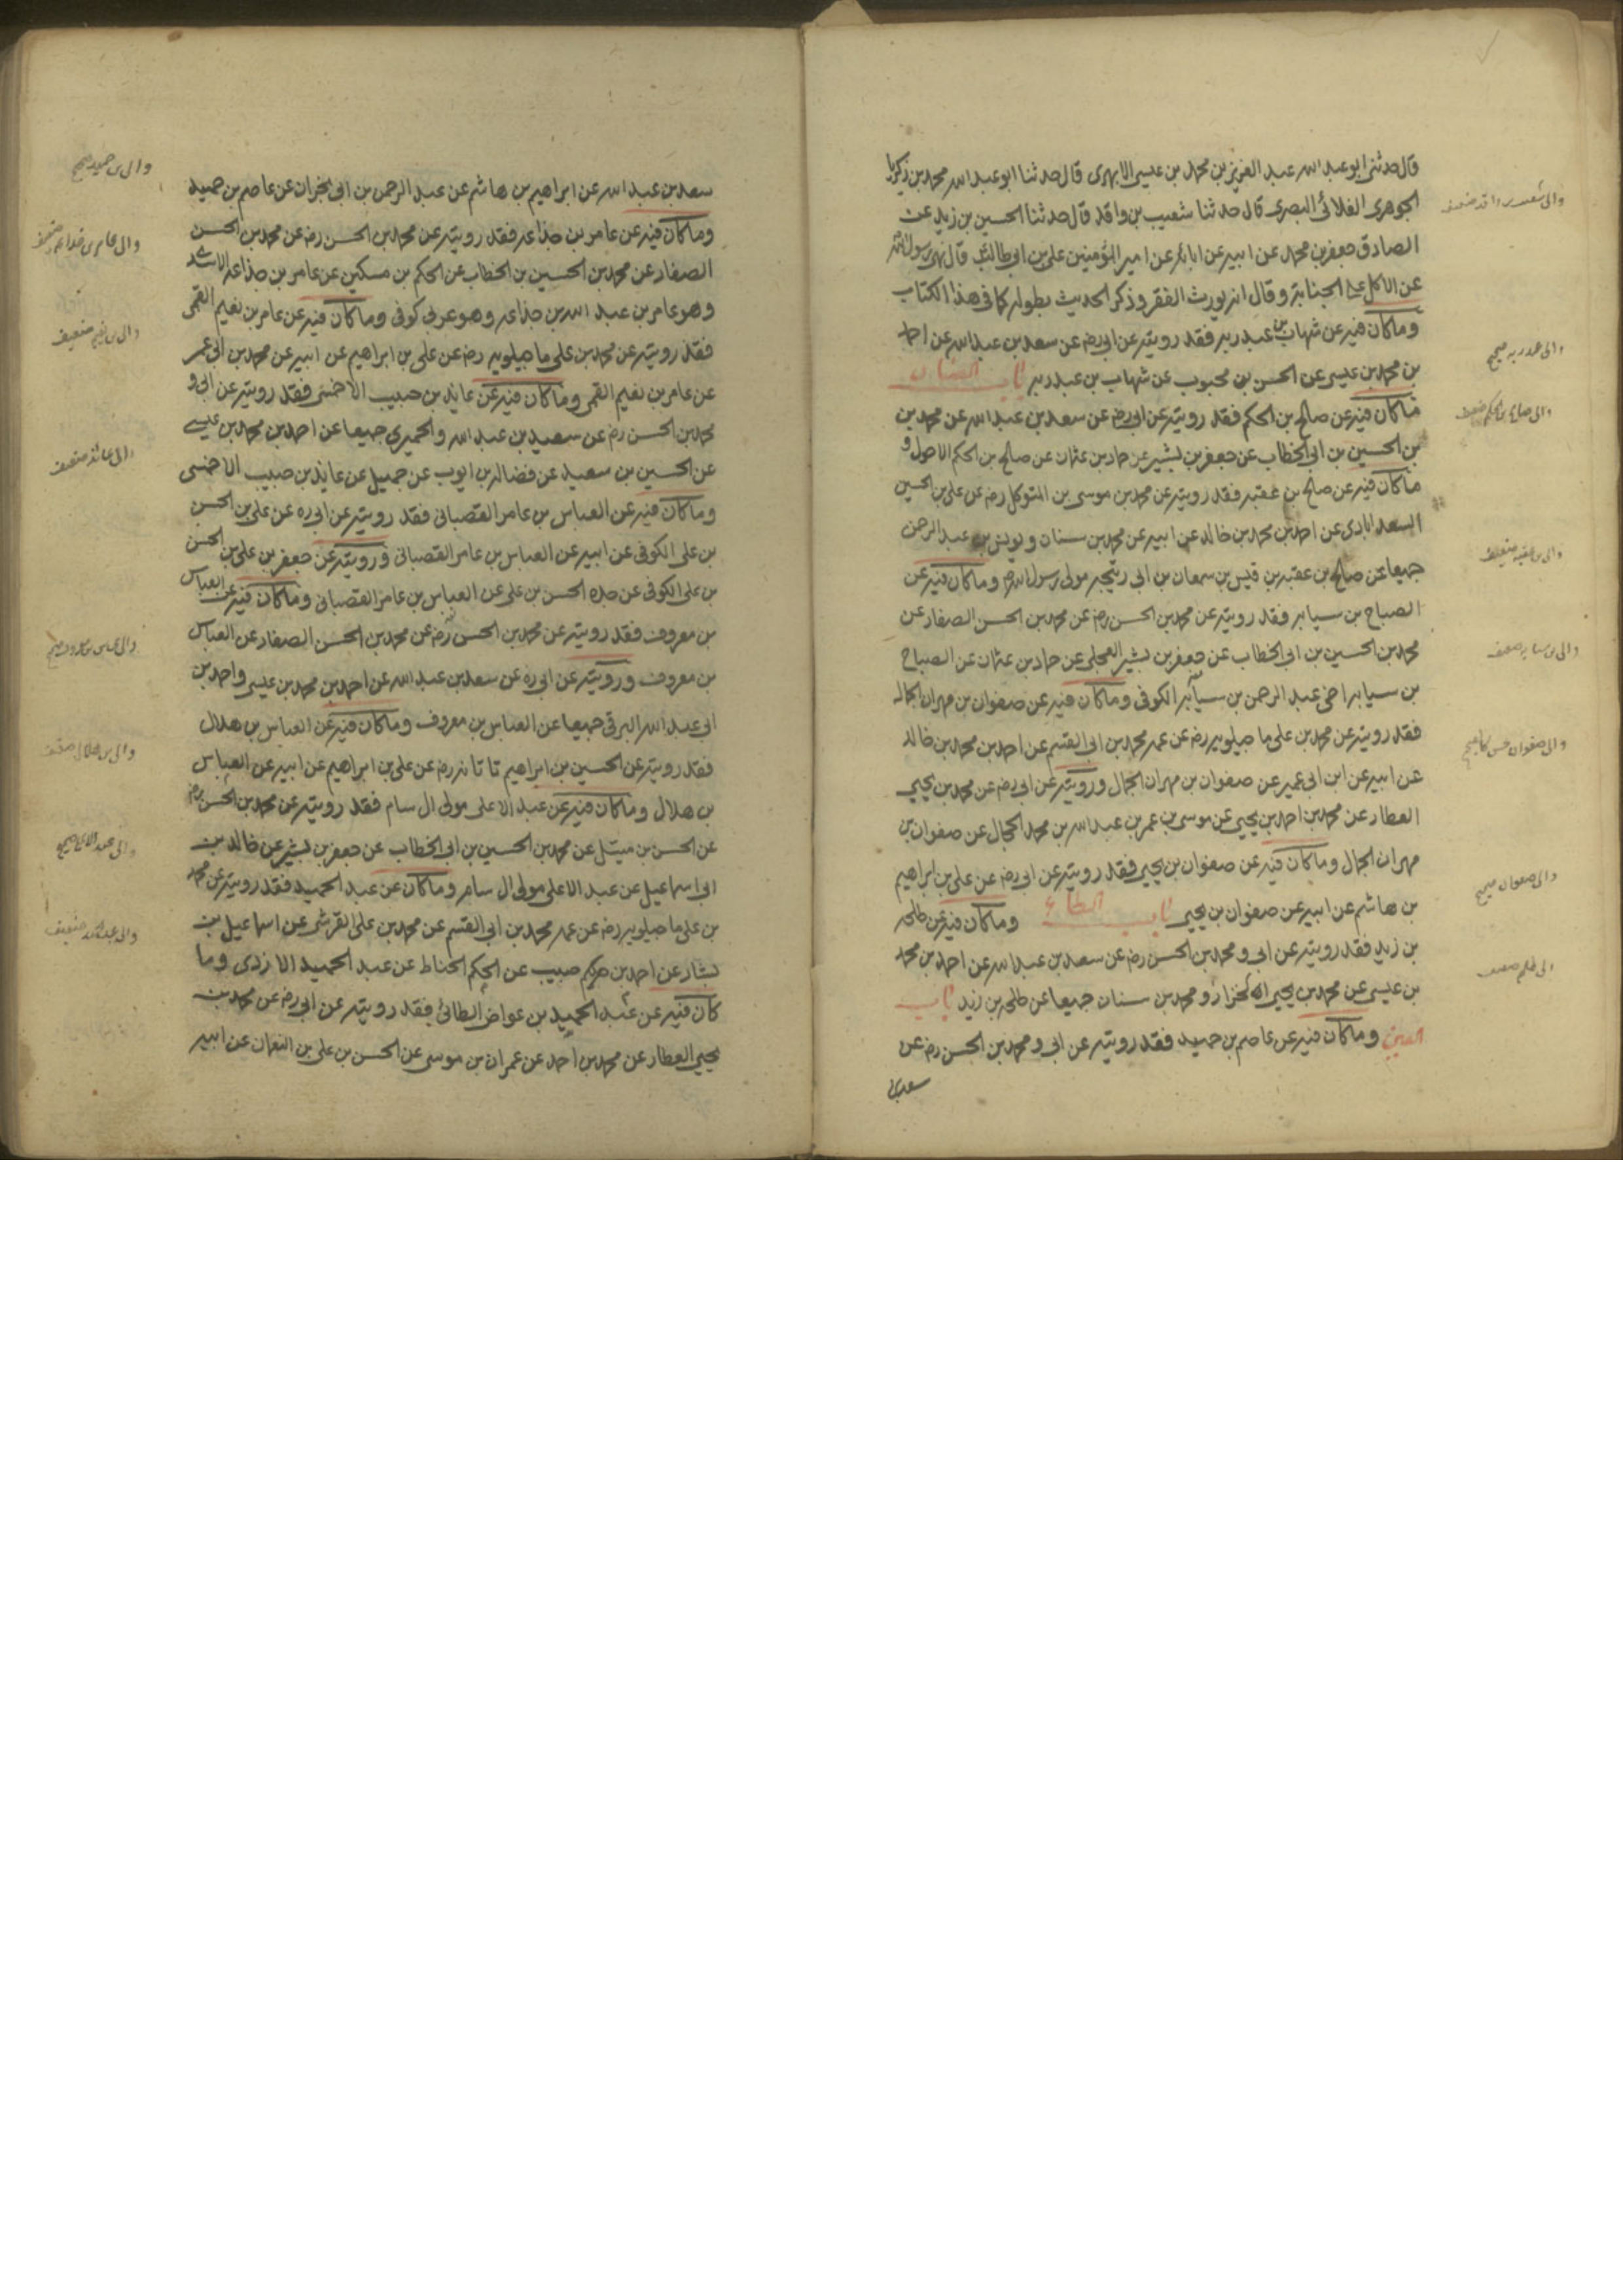 قال حدثنى ابو عبد الله عبد العزيز بن محمد بن عيسى الابهرى قال حدثنا ابو عبد الله محمد بن زكريا
الجوهرى الغلابى البصرى قال حدثنا شعيب بن واقد قال حدثنا الحسين بن زيد عن
الصادق جعفر بن محمد عن ابيه عن ابائه عن امير المؤمنين على بن ابى طالب قال نهى رسول الله
عن الاكل على الجنابة وقال انه يورث الفقر وذكر الحديث بطوله كما فى هذا الكتاب
وما كان فيه عن شهاب بن عبد ربه فقد رويته عن ابى رضه عن سعد بن عبد الله عن احمد
بن محمد بن عيسى عن الحسن بن محبوب عن شهاب بن عبد ربه باب الصاد
ما كان فيه عن صالح بن الحكم فقد رويته عن ابى رضه عن سعد بن عبد الله عن محمد بن
بن الحسين بن ابى الخطاب عن جعفر بن بشير عن حماد بن عثمان عن صالح بن الحكم الاحول و
ما كان فيه عن صالح بن عقبه فقد رويته عن محمد بن موسى بن المتوكل رضه عن على بن الحسين
السعد ابادى عن احمد بن محمد بن خالد عن ابيه عن محمد بن سنان و يونس بن عبد الرحمن
جميعا عن صالح بن عقبه بن قيس بن سمعان بن ابى ربيحه مولى رسول الله وما كان فيه عن
الصباح بن سيابه فقد رويته عن محمد بن الحسن رضه عن محمد بن الحسن الصفار عن
محمد بن الحسين بن ابى الخطاب عن جعفر بن بشير البجلى عن حماد بن عثمان عن الصباح
بن سيابه اخى عبد الرحمن بن سيابه الكوفى وما كان فيه عن صفوان بن مهران الجمال
فقد رويته عن محمد بن على ماجيلويه رضه عن عمه محمد بن ابى القسم عن احمد بن محمد بن خالد
عن ابيه عن ابن ابى عمير عن صفوان بن مهران الجمال ورويته عن ابى رضه عن محمد بن يحيى
العطار عن محمد بن احمد بن يحيى عن موسى بن عمر بن عبد الله بن محمد الحجال عن صفوان بن
مهران الجمال وما كان فيه عن صفوان بن يحيى فقد رويته عن ابى رضه عن على بن ابراهيم
بن هاشم عن ابيه عن صفوان بن يحيى باب الطاء وما كان فيه عن طلحه
بن زيد فقد رويته عن ابى ومحمد بن الحسن رضه عن سعد بن عبد الله عن احمد بن محمد
بن عيسى عن محمد بن يحيى الخزاز ومحمد بن سنان جميعا عن طلحه بن زيد باب
العين وما كان فيه عن عاصم بن حميد فقد رويته عن ابى ومحمد بن الحسن رضه عن
سعد بن
والى شعيب بن واقد ضعيف
والى عبد ربه صحيح
والى صالح بن الحكم ضعيف
والى بن عقبه ضعيف
والى بن سيابه ضعيف
والى صفوان حسن كالصحيح
والى صفوان صحيح
والى طلحه ضعيف
سعد بن عبد الله عن ابراهيم بن هاشم عن عبد الرحمن بن ابى نجران عن عاصم بن حميد
وما كان فيه عن عامر بن جذاعه فقد رويته عن محمد بن الحسن رضه عن محمد بن الحسن
الصفار عن محمد بن الحسين بن الخطاب عن الحكم بن مسكين عن عامر بن جذاعه الازدى
وهو عامر بن عبد الله بن جذاعه وهو عربى كوفى وما كان فيه عن عامر بن نعيم القمى
فقد رويته عن محمد بن على ماجيلويه رضه عن على بن ابراهيم عن ابيه عن محمد بن ابى عمير
عن عامر بن نعيم القمى وما كان فيه عن عايذ بن حبيب الاحمسى فقد رويته عن ابى و
محمد بن الحسن رضه عن سعيد بن عبد الله والحميرى جميعا عن احمد بن محمد بن عيسى
عن الحسين بن سعيد عن فضاله بن ايوب عن جميل عن عايذ بن حبيب الاحمسى
وما كان فيه عن العباس بن عامر القصبانى فقد رويته عن ابى ره عن على بن الحسن
بن على الكوفى عن ابيه عن العباس بن عامر القصبانى ورويته عن جعفر بن على بن الحسن
بن على الكوفى عن جده الحسن بن على عن العباس بن عامر القصبانى وما كان فيه عن العباس
بن معروف فقد رويته عن محمد بن الحسن رضه عن محمد بن الحسن الصفار عن العباس
بن معروف ورويته عن ابى ره عن سعد بن عبد الله عن احمد بن محمد بن عيسى واحمد بن
ابى عبد الله البرقى جميعا عن العباس بن معروف وما كان فيه عن العباس بن هلال
فقد رويته عن الحسين بن ابراهيم تاتانه رضه عن على بن ابراهيم عن ابيه عن العباس
بن هلال وما كان فيه عن عبد الاعلى مولى ال سام فقد رويته عن محمد بن الحسن رضه
عن الحسن بن متيل عن محمد بن الحسين بن ابى الخطاب عن جعفر بن بشير عن خالد بن
ابى اسماعيل عن عبد الاعلى مولى ال سام وما كان عن عبد الحميد فقد رويته عن محمد
بن على ماجيلويه رضه عن عمه محمد بن ابى القسم عن محمد بن على القرشى عن اسماعيل بن
بشار عن احمد بن حبيب عن الحكم الحناط عن عبد الحميد الازدى وما
كان فيه عن عبد الحميد بن عواض الطائى فقد رويته عن ابى رضه عن محمد بن
يحيى العطار عن محمد بن احمد عن عمران بن موسى عن الحسن بن على بن النعمان عن ابيه
والى بن حميد صحيح
والى عامر بن جذاعه ضعيف
والى بن نعيم ضعيف
والى عائذ ضعيف
والى عباس بن معروف صحيح
والى بن هلال ضعيف
والى عبد الاعلى صحيح